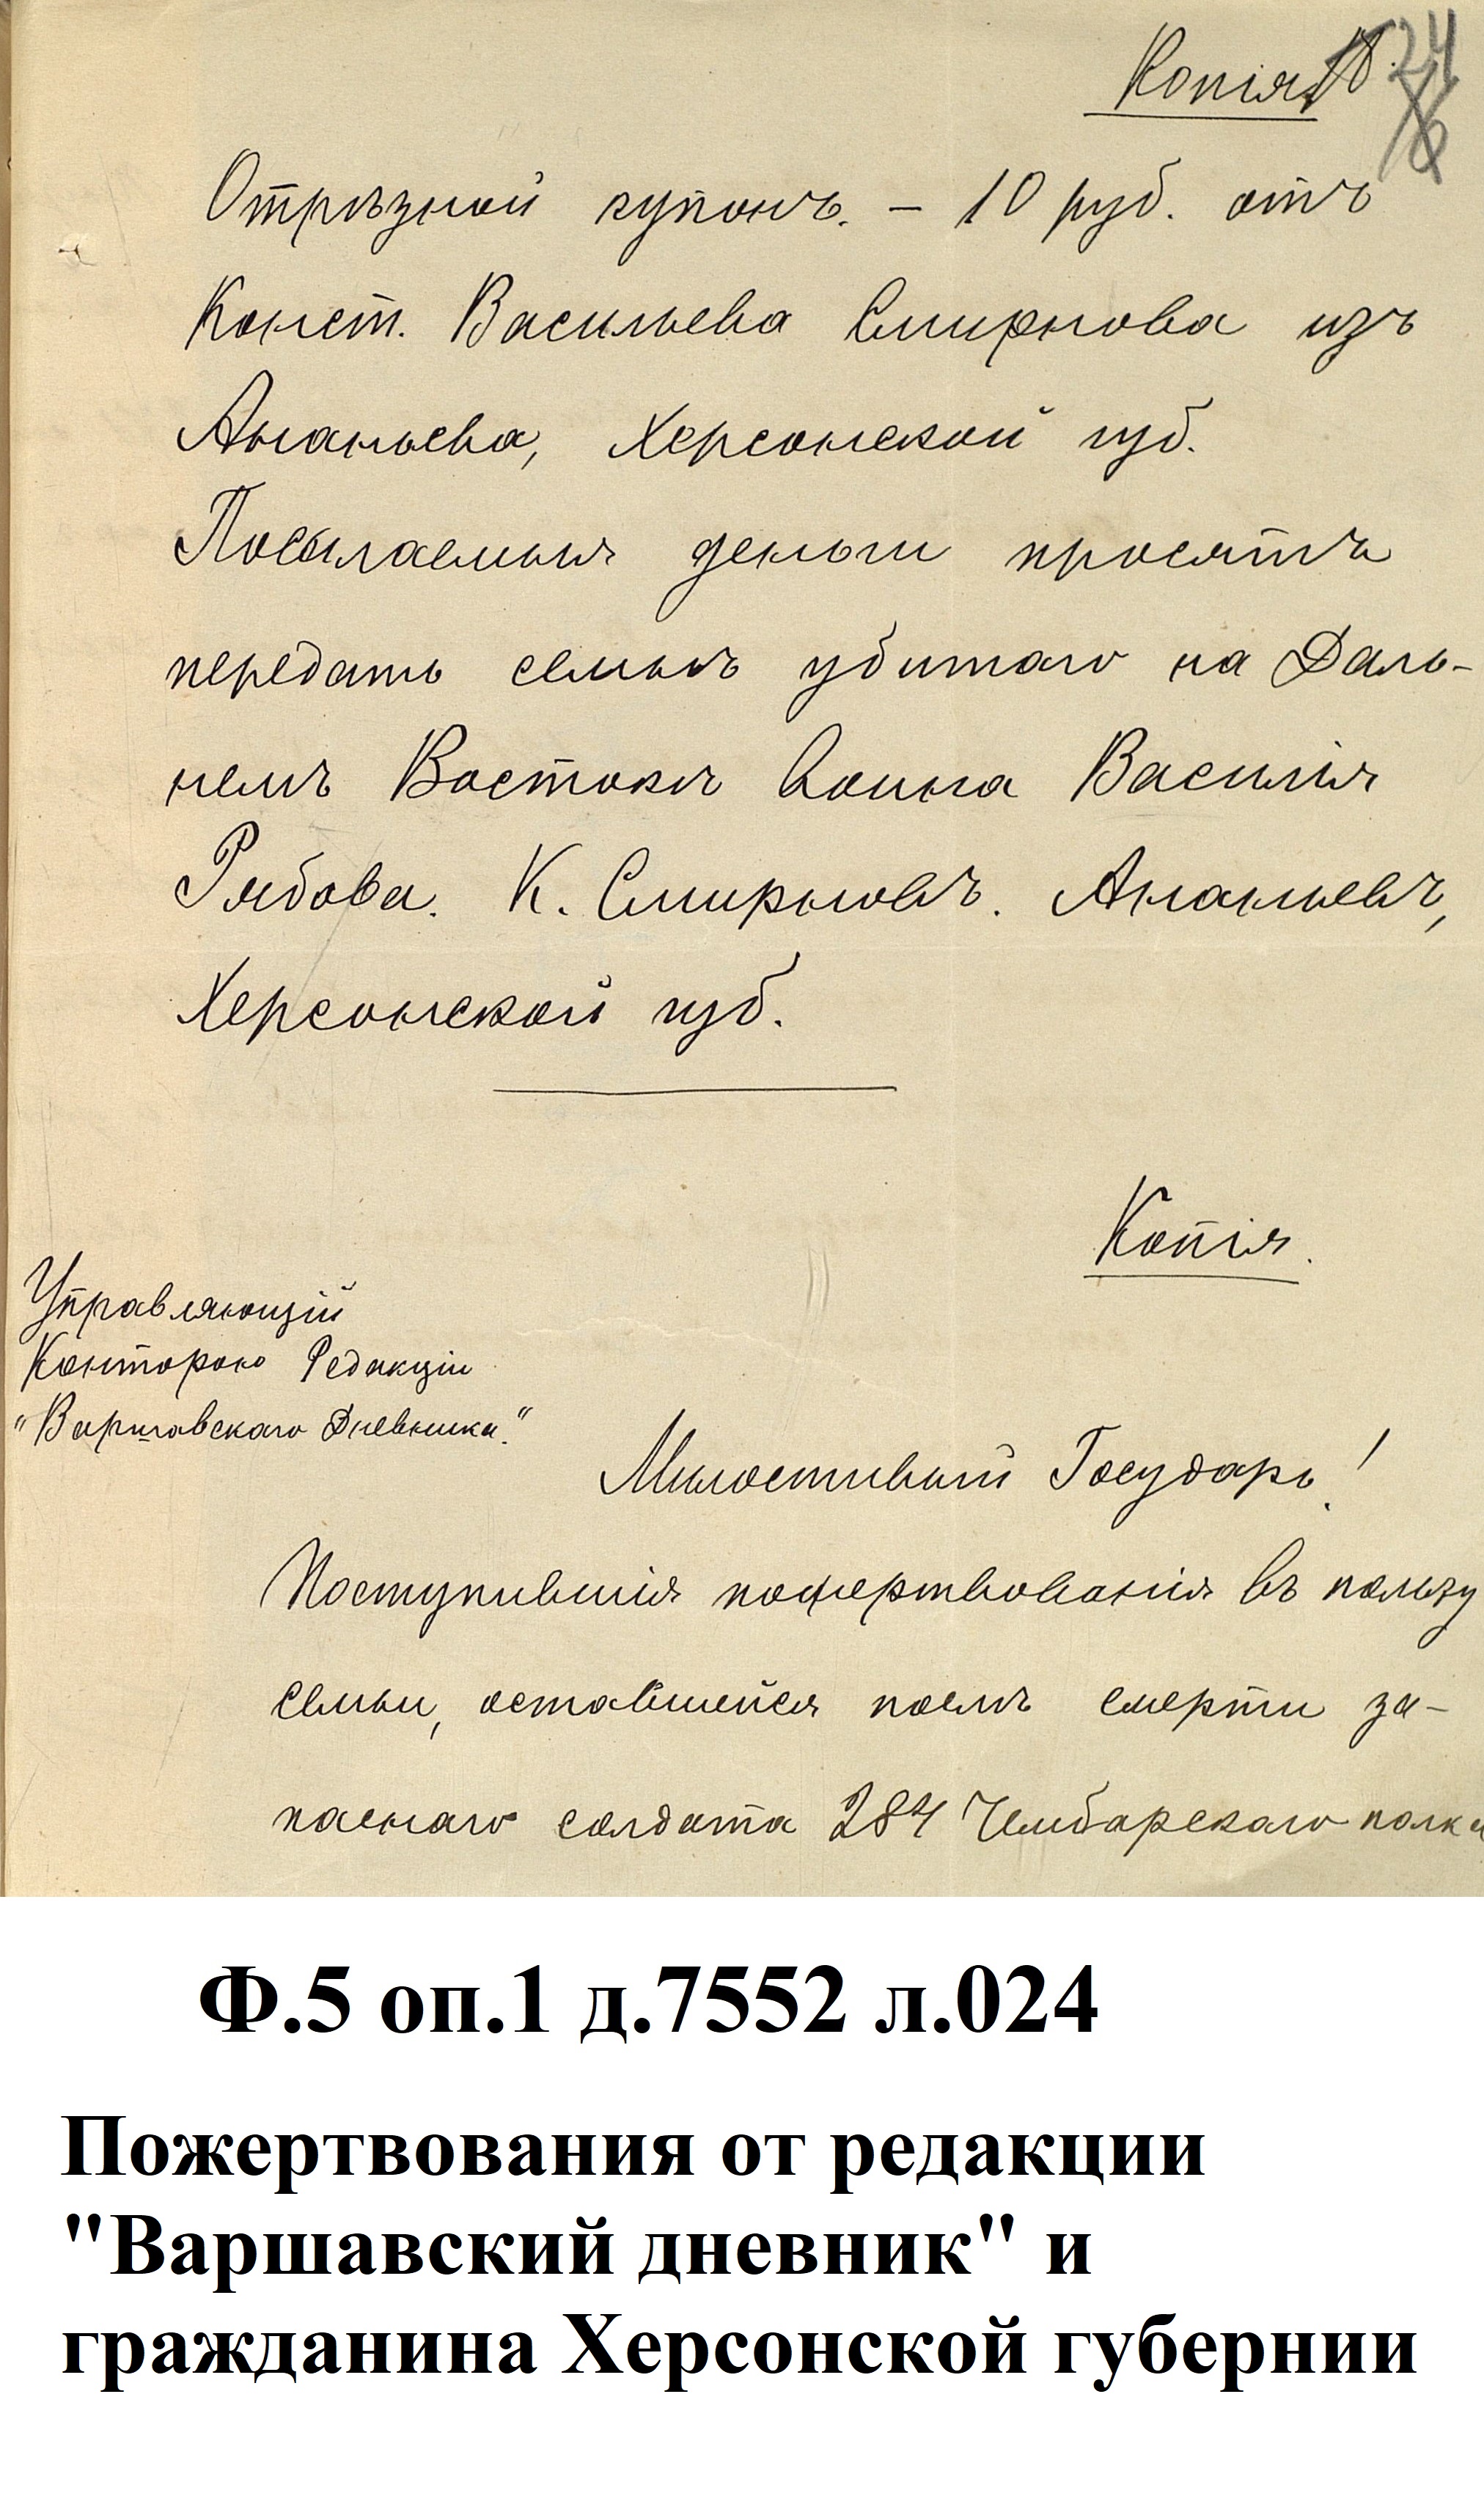 Копія 24
Отрѣзной купонъ. – 10 руб. отъ
Конст. Васильева Смирнова изъ
Ананьева, Херсонской губ.
Посылаемыя деньги просятъ
передать семьѣ убитаго на Даль-
немъ Востокѣ воина Василія
Рябова. К. Смирновъ. Ананьевъ,
Херсонской губ.
Копія.
Управляющій
Конторою Редакціи
"Варшавскаго Дневника".
Милостивый Государь!
Поступившія пожертвованія въ пользу
семьи, оставшейся послѣ смерти за-
паснаго солдата 284 Чембарскаго полка
Ф.5 оп.1 д.7552 л.024
Пожертвования от редакции
"Варшавский дневник" и
гражданина Херсонской губернии